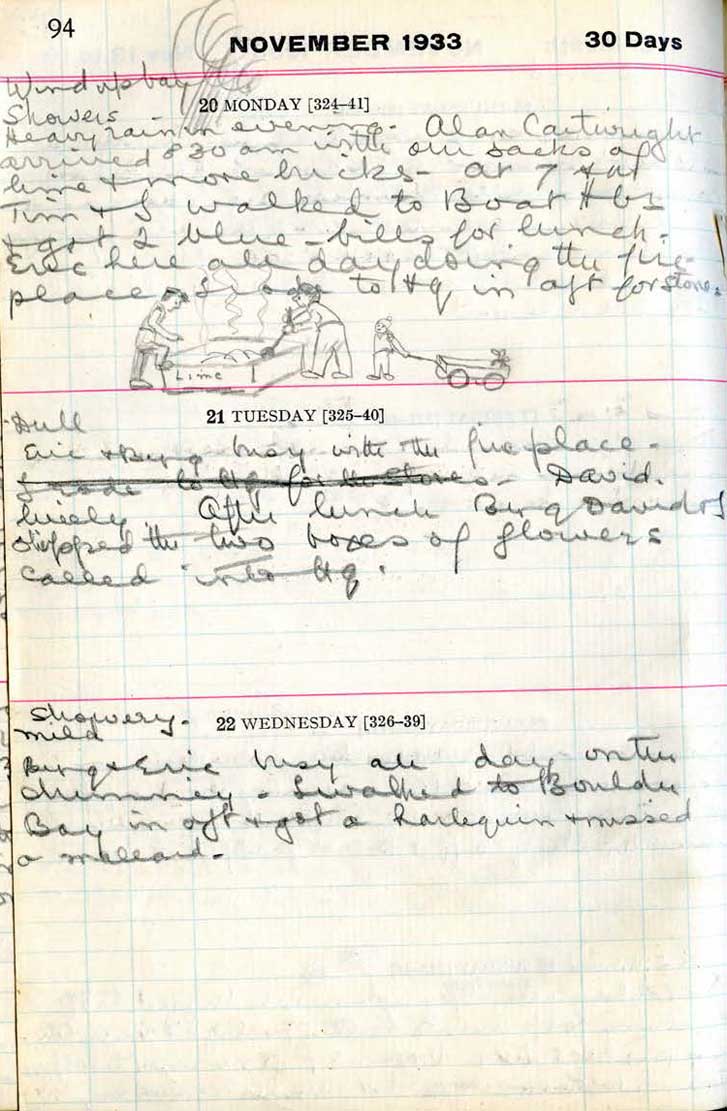 94
NOVEMBER 1933
30 Days
Wind up bay
20 MONDAY [324–41]
Showers -
Heavy rain in evening. Alan Cartwright
arrived 8 30 am with our sacks of
lime + more bricks - at 7
Tim + I walked to Boat Hbr
+ got 2 blue-bills for lunch.
Eric here all day doing the fire-
place I rode to Hq in aft for stone.
Lime
21 TUESDAY [325–40]
Dull
Eric + Byng busy with the fireplace -
I rode to Hq for the stones - David.
lively After lunch Byng David + I
shipped the two boxes of flowers
called into Hq.
22 WEDNESDAY [326–39]
Showery.
mild
Byng + Eric busy all day on the
chimney. I walked to Boulder
Bay in aft + got a harlequin + missed
a mallard.